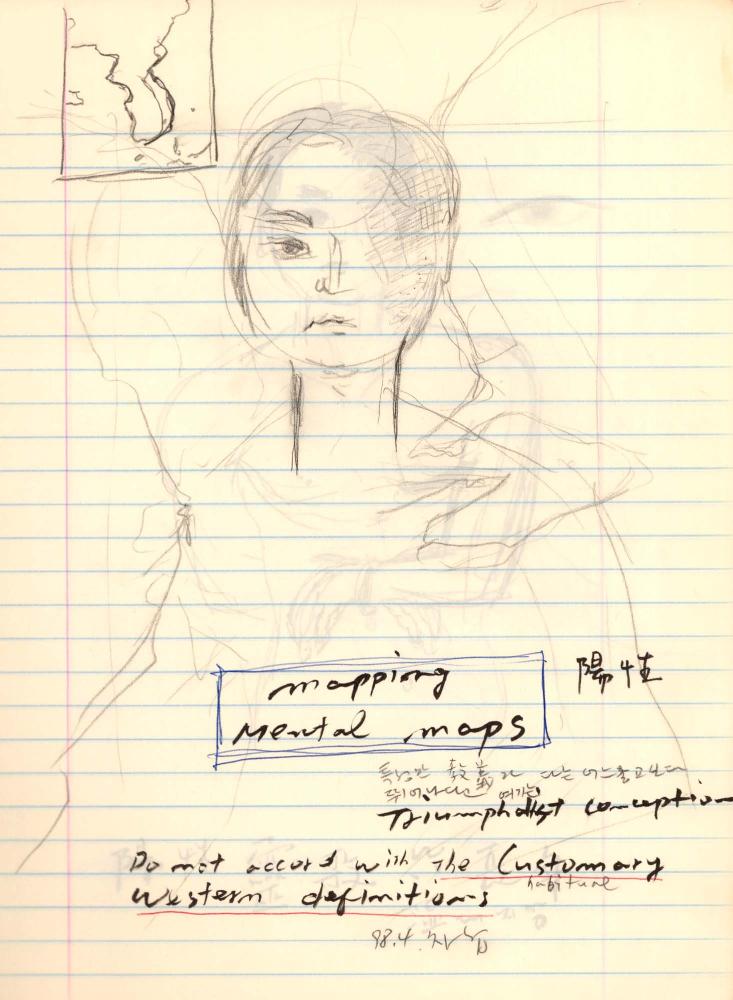 mapping
Mental maps
陽性
특정한 敎義가 다른 어느 종교보다
뛰어나다고 여기는
Triumphalist conception
Do not accord with the Customary
habitual
Western definitions
98.4.